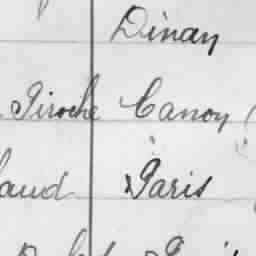 Dinan
Piroche Cancy (
aud Paris